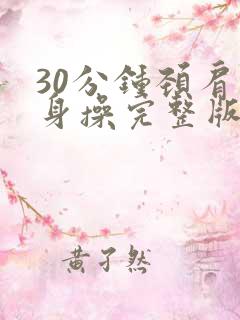 30分鍾頚肩
身操完整版
黄子然